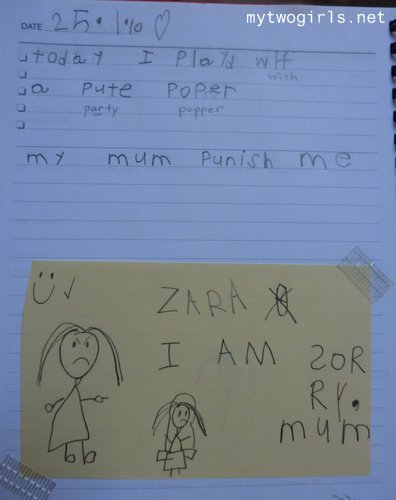 mytwogirls.net
DATE 25.1.10
today I Playd wff
with
a Pute PoPer
party popper
my mum Punish me
ZARA
I AM SORRY, mum